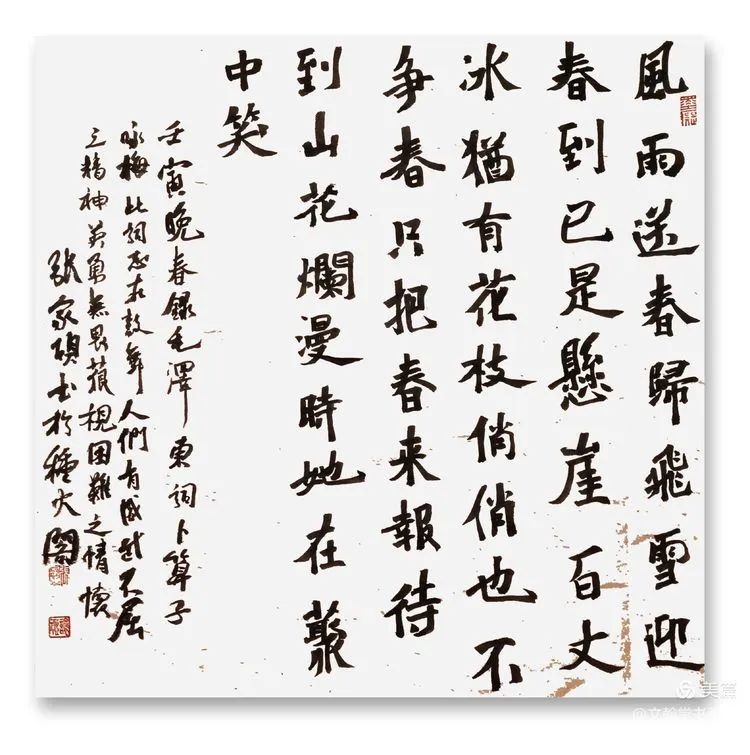 風雨送春歸飛雪迎
春到已是懸崖百丈
冰猶有花枝俏俏也不
争春只把春来報待
到山花爛漫時她在叢
中笑
壬寅晚春錄毛澤東詞卜算子
咏梅此詞意在鼓舞人們有威武不屈
之精神英勇無畏藐視困難之情懷
張家碩书於種閣
美篇
@文翰堂书